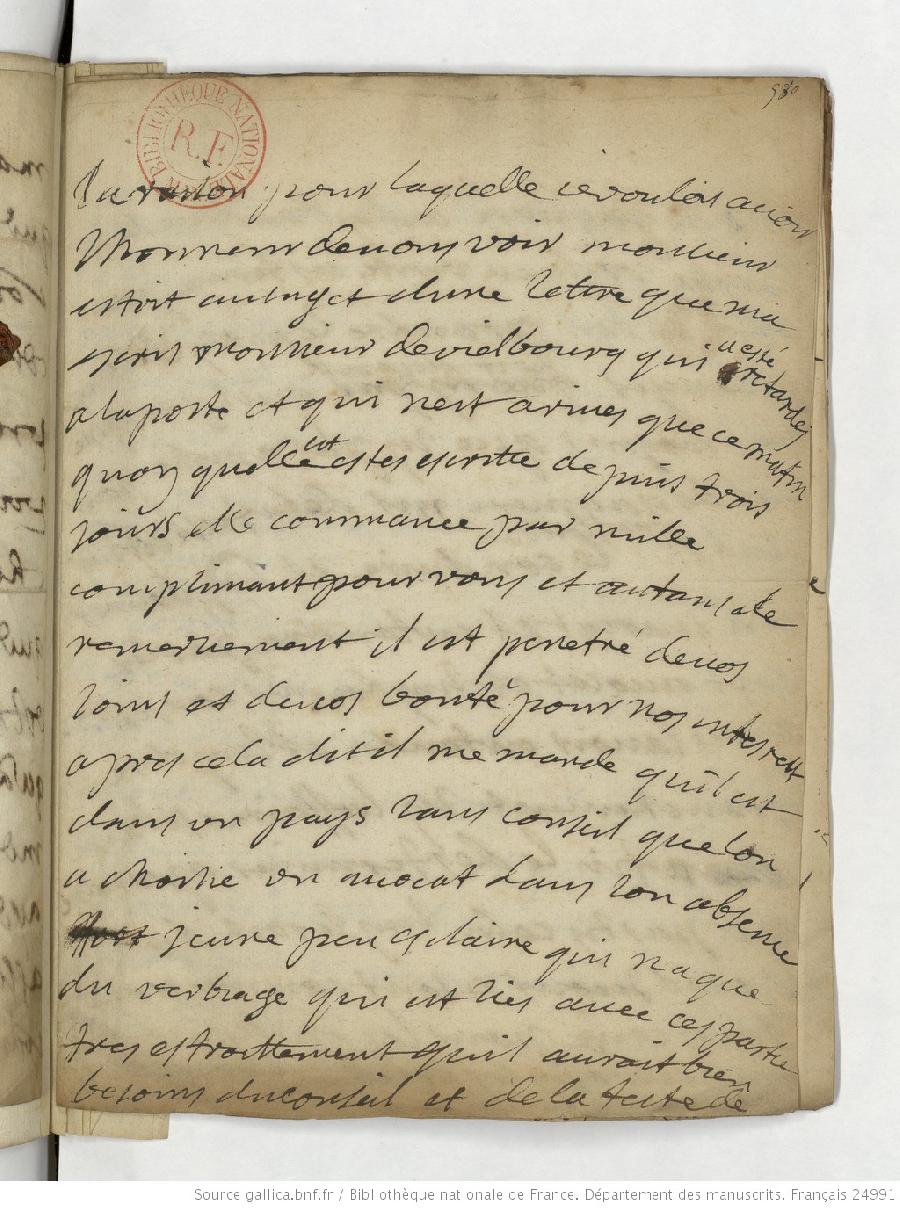 980
BIBLIOTHEQUE NATIONALE
R.F.
la raison pour laquelle ie voulois auoir
lhonneur de uous voir monsieur
estoit au suyet dune lettre que ma
escris monsieur de vielbourg qui a esté retardes
a la poste et qui nest arives que ce matin
quoy quelle eut estes escritte depuis trois
iours elle commance par mille
complimant pour vous et autans de
remerciement il est penetré de uos
soins et de uos bonté pour nos interest
apres cela dit il me mande quil est
dans un pays sans conseil que lon
a choisie un auocat dans son absence
jeune peu esclaire qui na que
du verbiage qui est lies auec ces partie
tres estroittement quil auroit bien
besoins du conseil et de la teste de
Source gallica.bnf.fr / Bibliothèque nationale de France. Département des manuscrits. Français 24991